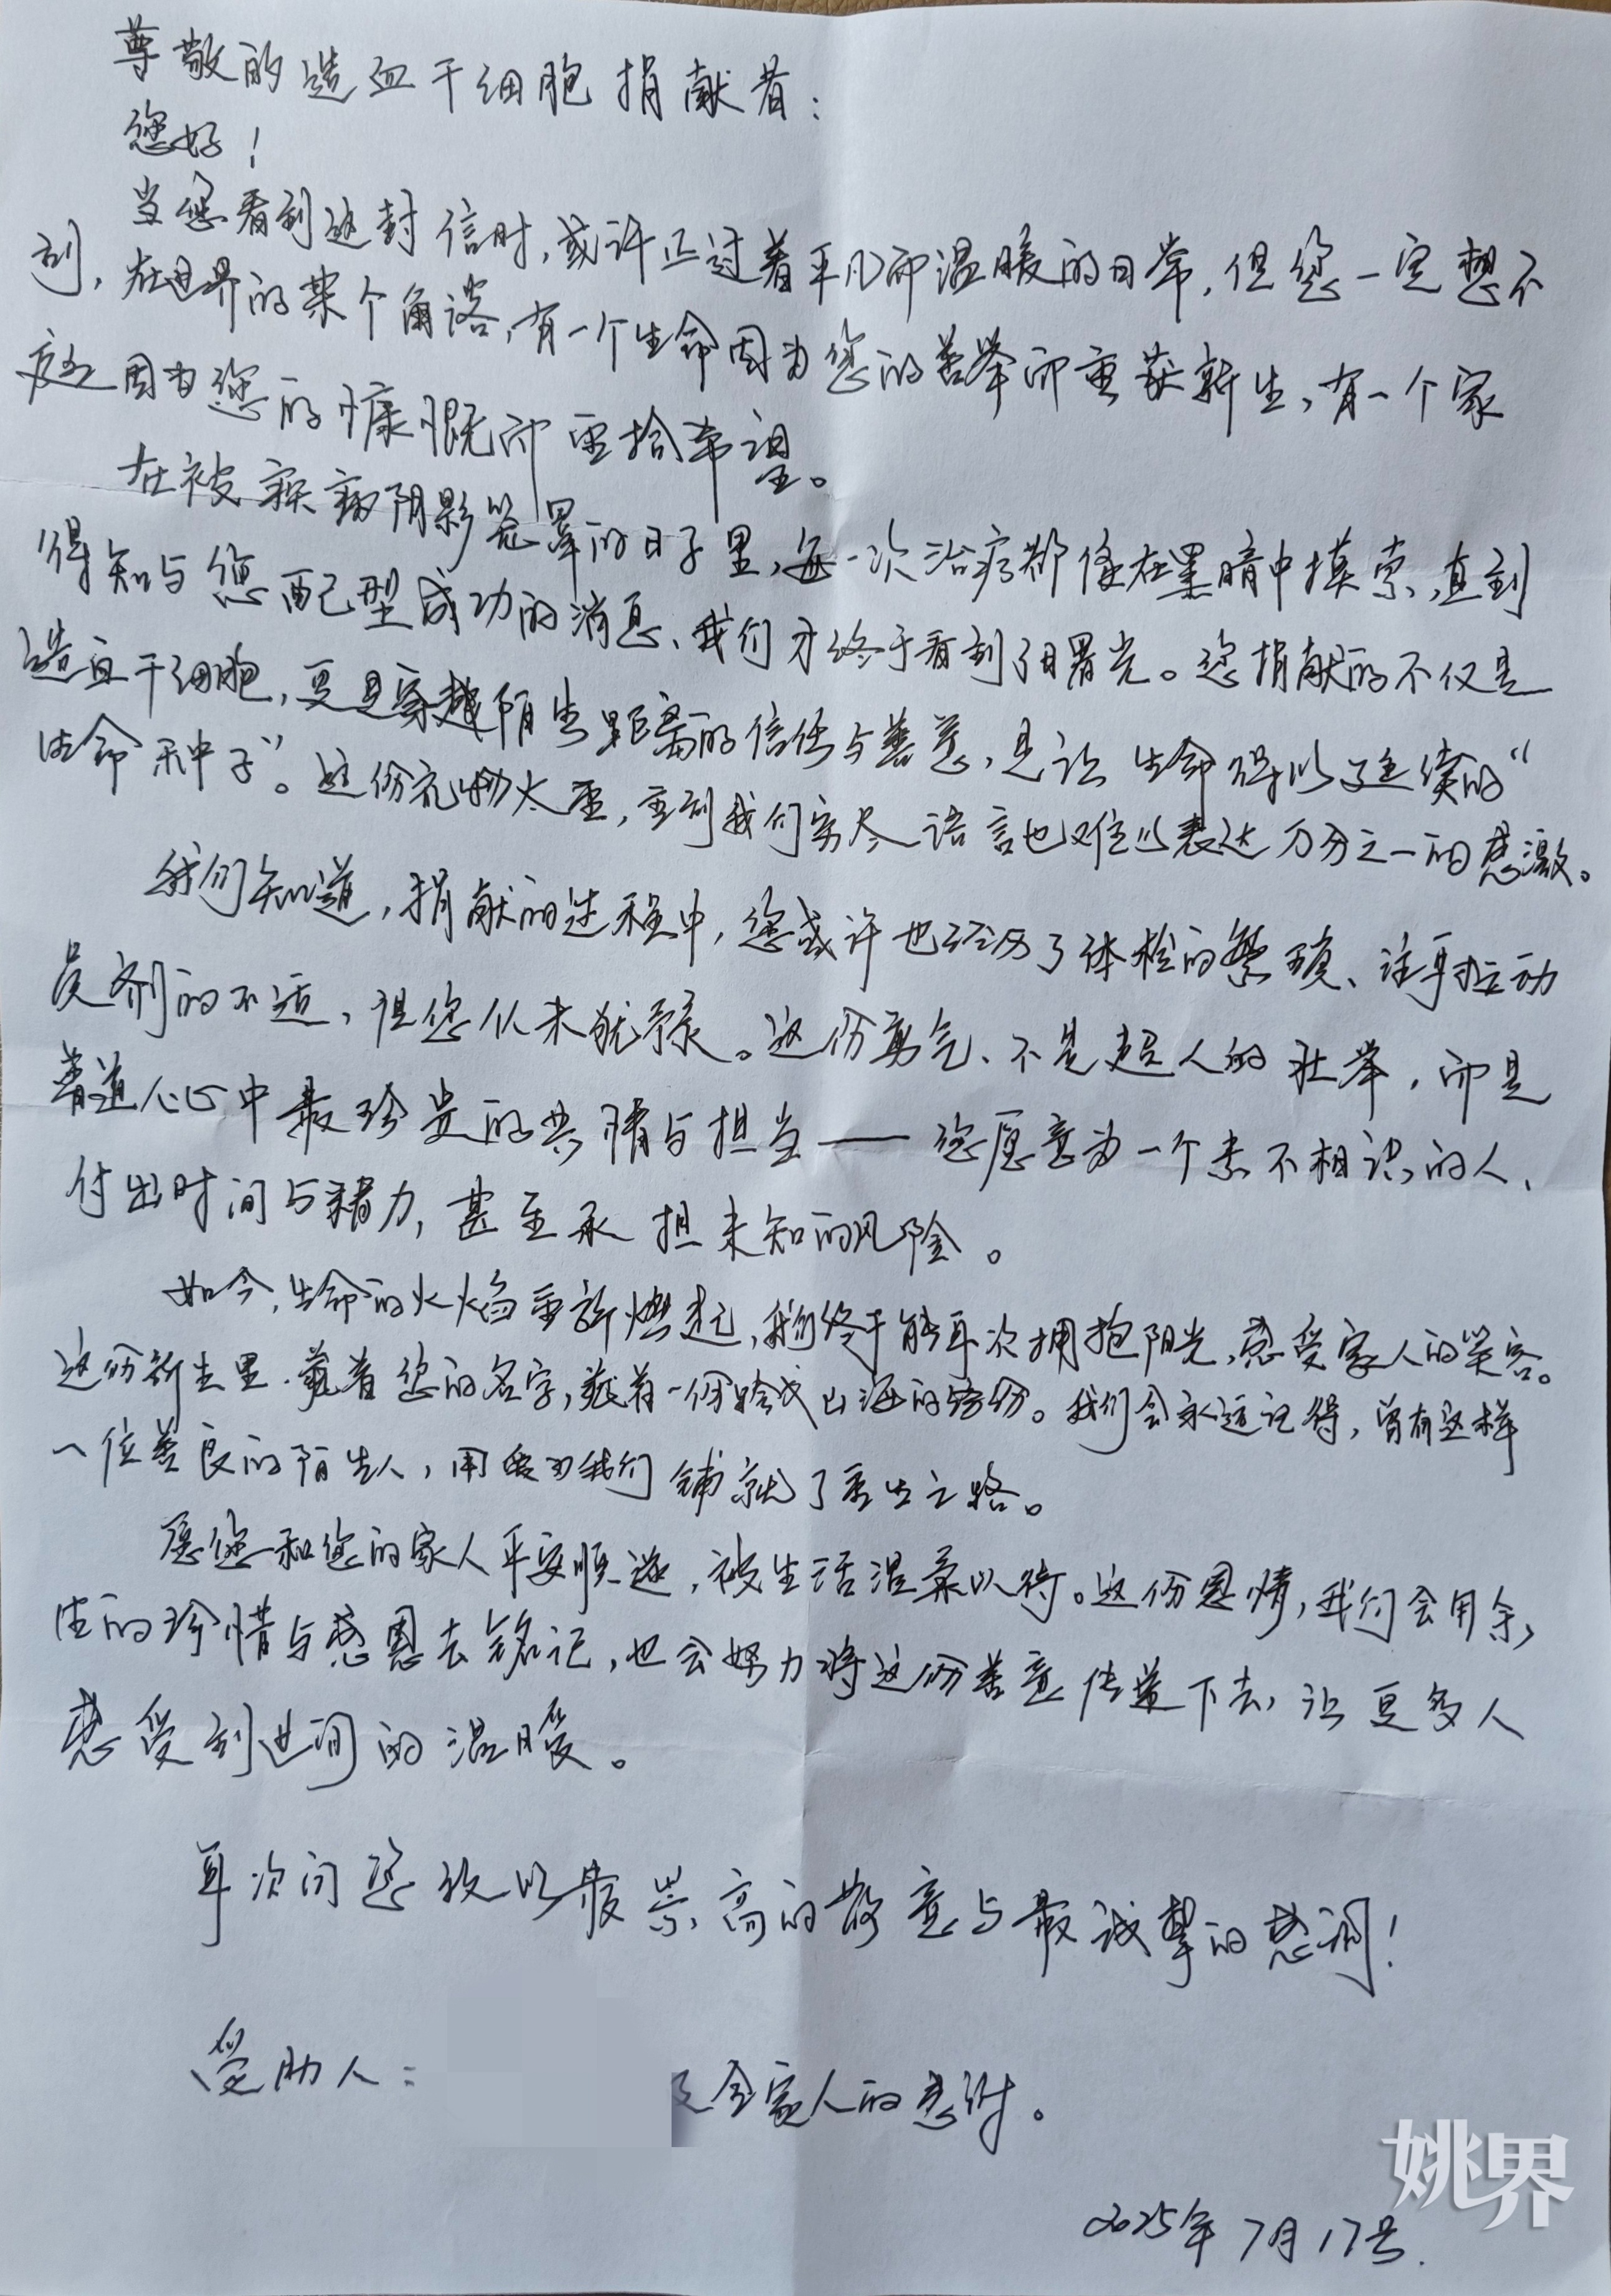 尊敬的造血干细胞捐献者：
您好！
当您看到这封信时，或许正过着平凡而温暖的日常，但您一定想不
到，在世界的某个角落，有一个生命因为您的善举而重获新生，有一个家
庭因为您的慷慨而重拾希望。
在被疾病阴影笼罩的日子里，每一次治疗都像在黑暗中摸索，直到
得知与您配型成功的消息、我们才终于看到了曙光。您捐献的不仅是
造血干细胞，更是穿越陌生距离的信任与善意，是让生命得以延续的“
生命种子”。这份礼物太重，重到我们穷尽语言也难以表达万分之一的感激。
我们知道，捐献的过程中，您或许也经历了体检的繁琐、注射动
员剂的不适，但您从未犹豫。这份勇气、不是超人的壮举，而是
普通人心中最珍贵的共情与担当——您愿意为一个素不相识的人、
付出时间与精力，甚至承担未知的风险。
如今，生命的火焰重新燃起，我们终于能再次拥抱阳光，感受家人的笑容。
这份新生里.藏着您的名字，藏着一份跨越山海的缘份。我们会永远记得，曾有这样
一位善良的陌生人，用爱为我们铺就了重生之路。
愿您和您的家人平安顺遂，被生活温柔以待。这份恩情，我们会用余
生的珍惜与感恩去铭记，也会努力将这份善意传递下去，让更多人
感受到世间的温暖。
再次向您致以最崇高的敬意与最诚挚的感谢！
受助人：及全家人的感谢。
姚界
2025年7月17号.